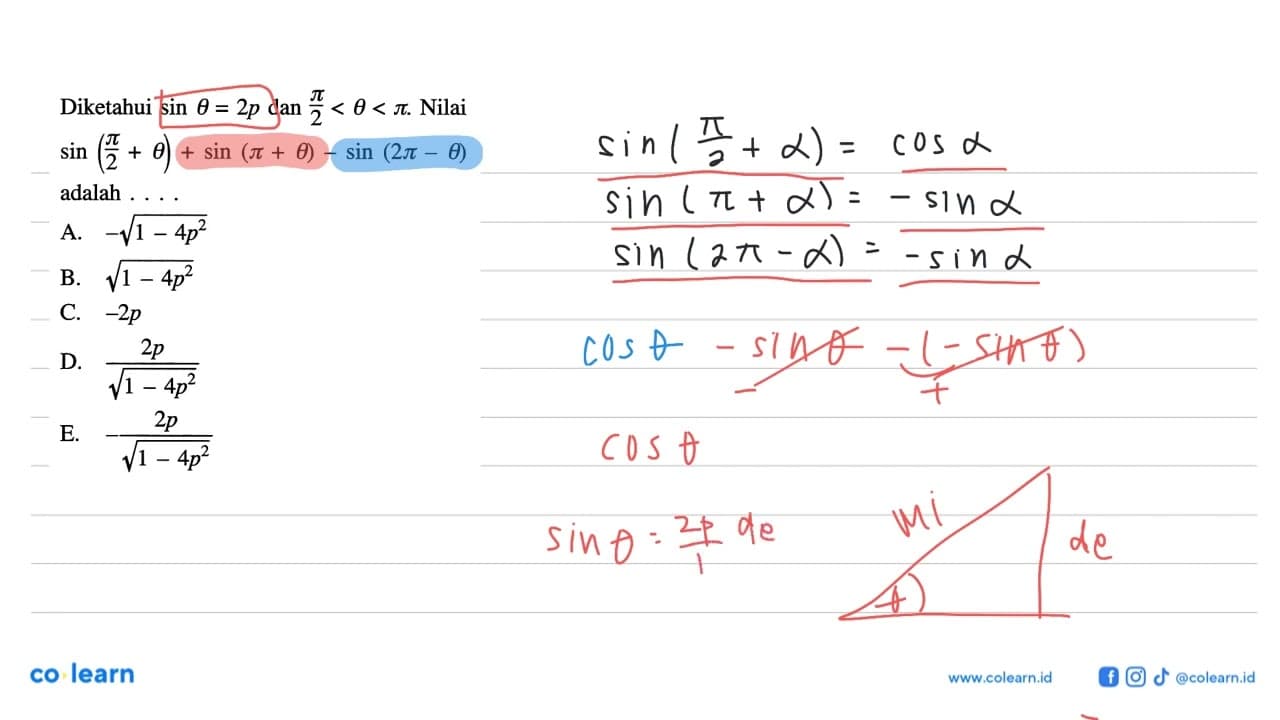 Diketahui sin θ = 2p dan π/2 < θ < π. Nilai
sin (π/2 + θ) + sin (π + θ) – sin (2π – θ)
adalah . . . .
A. –√(1 – 4p²)
B. √(1 – 4p²)
C. –2p
D. 2p/√(1 – 4p²)
E. –2p/√(1 – 4p²)
sin(π/2 + α) = cos α
sin(π + α) = -sin α
sin(2π - α) = -sin α
cos θ - sin θ -(- sin θ)
- +
cos θ
sin θ = 2p/1 de
mi
de
θ
co learn
www.colearn.id
@colearn.id